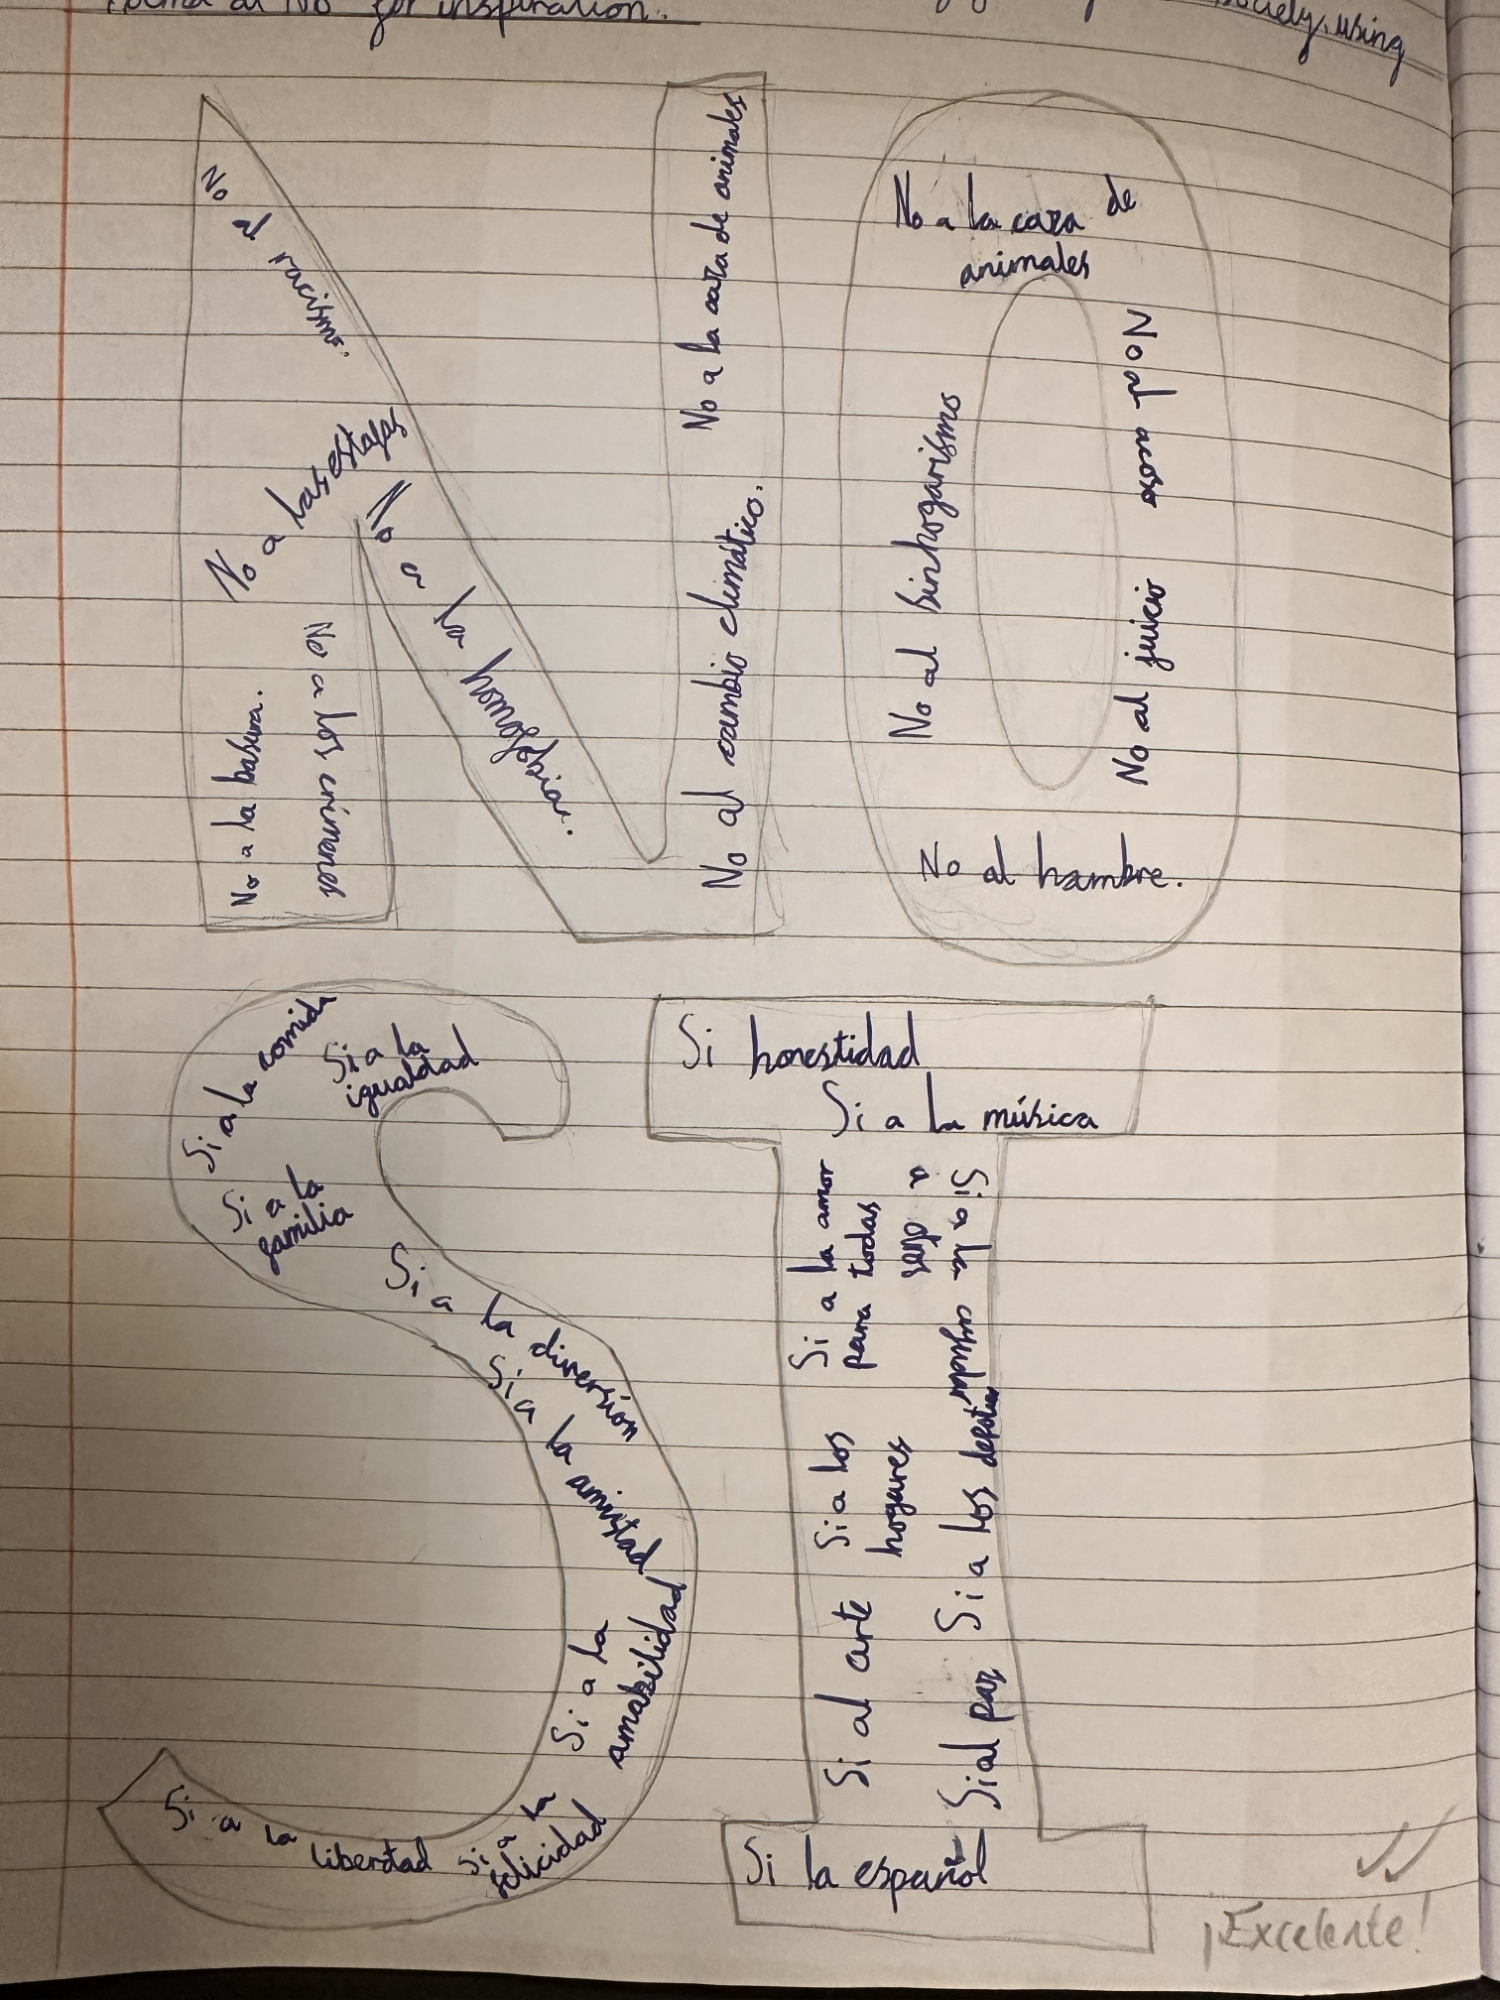 Poema al No for inspiration.
society, using
No al racismo.
No a las estafas
No a la homofobia.
No a la basura.
No a los crimenes
No a la caza de animales
No al cambio climático.
No a la caza de
animales
No al sinhogarismo
No al acoso
No al juicio
No al hambre.
Si a la comida
Si a la
igualdad
Si a la
familia
Si a la diversión
Si a la amistad
Si a la
amabilidad
Si a la
felicidad
Si a la libertad
Si honestidad
Si a la música
Si a la amor
para todas
Si a la
Si a los
hogares
Si a los
Si al arte
Si al paz
Si la español
¡Excelente!